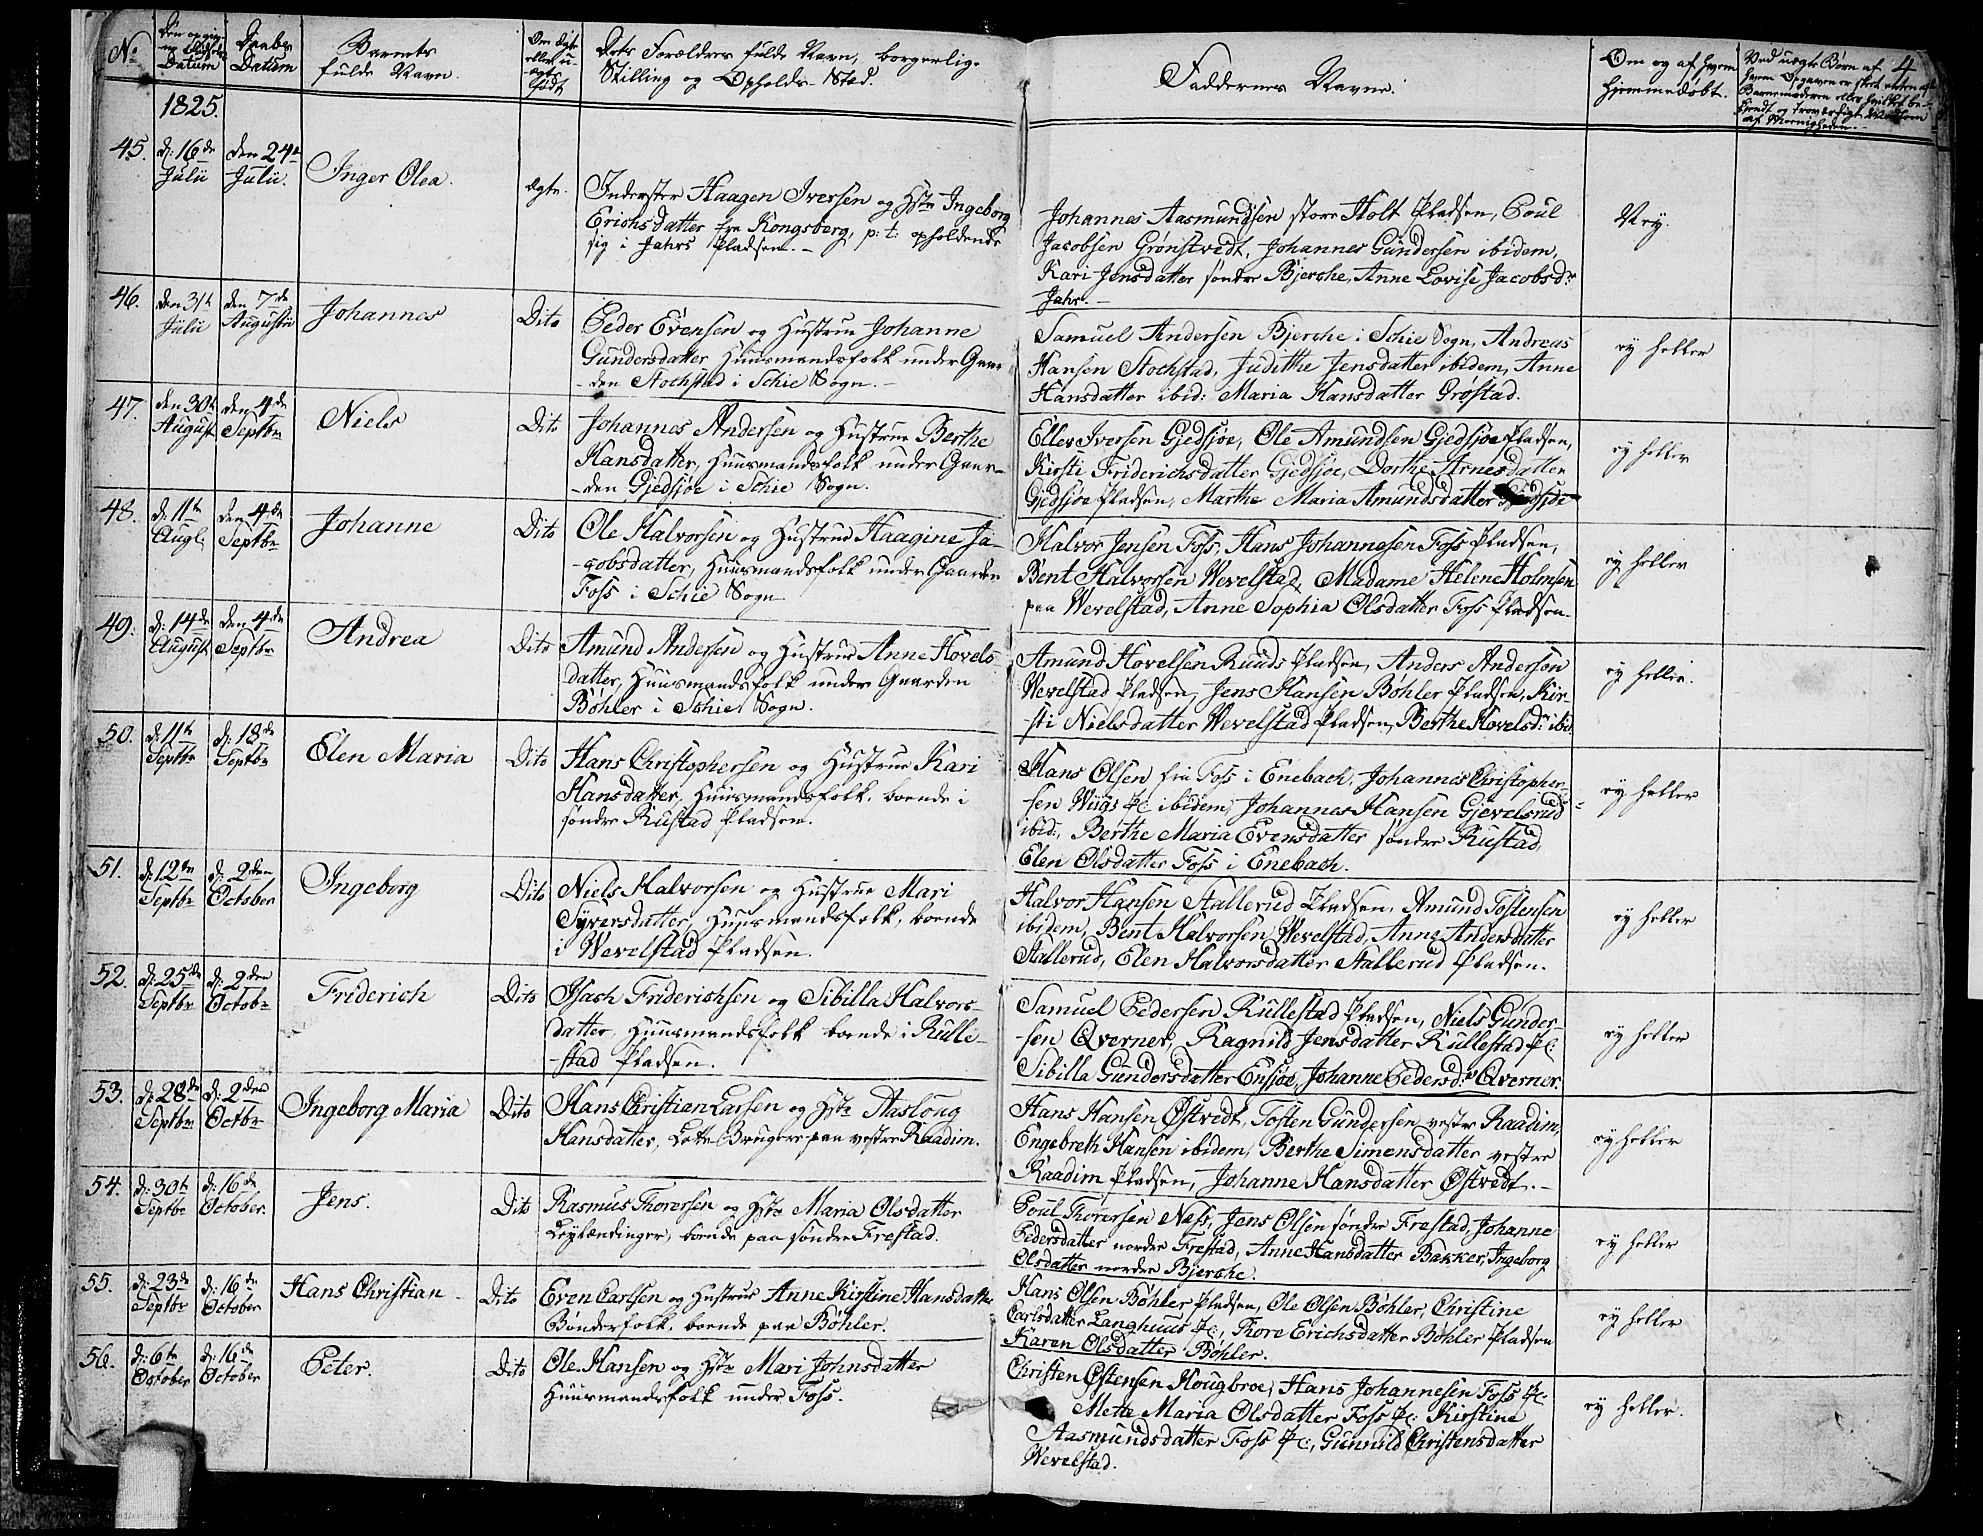 No
Den og in-
Fødsels
Datum
Daabs
Datum
Barnets
fulde Navn.
Om ægte
eller u-
ægte
født
Dets Forældres fulde Navn, borgerlige
Stilling og Opholds-Sted.
Faddernes Navne.
Om og af hvem
hjemmedøbt.
4
Ved uægte Børn af
hvem Opgaven er skeet enten af
Barnemoderen eller hvilket be-
kjendt og troværdigt Medlem
af Menigheden.
1825.
45.
d: 16de
Julii
den 24de
Julii.
Inger Olea.
ægte.
Inderster Haagen Iversen og Hstr Ingeborg
Erichsdatter fra Kongsberg, p: t: opholdende
sig i Jahrs Pladsen.-
Johannes Aasmundsen store Holt Pladsen, Poul
Jacobsen Grønstvedt, Johannes Gundersen ibidem,
Kari Jensdatter søndre Bjerche, Anne Lovise Jacobsdr
Jahr.-
Ney.
46.
den 31te
Julii
den 7de
Augustii
Johannes
Dito
Peder Evensen og Hustrue Johanne
Gundersdatter, Huusmandsfolk under Gaar-
-den Stochstad i Schie Sogn.-
Samuel Andersen Bjerche i Schie Sogn, Andreas
Hansen Stochstad, Judithe Jensdatter ibidem, Anne
Hansdatter ibid: Maria Hansdatter Grøstad.
ey heller
47.
den 30te
August
den 4de
Septbr
Niels
Dito
Johannes Andersen og Hustrue Berthe
Hansdatter, Huusmandsfolk under Gaar-
-den Gjedsjøe i Schie Sogn.
Eller Iversen Gjedsjøe, Ole Amundsen Gjedsjøe Pladsen,
Kirsti Friderichsdatter Gjedsjøe, Dorthe Arnesdatter
Gjedsjøe Pladsen, Marthe Maria Amundsdatter Gjedsjøe
ey heller
48.
d: 11te
Augl.
den 4de
Septbr
Johanne
Dito
Ole Halvorsen og Hustrue Haagine Ja-
-cobsdatter, Huusmandsfolk under Gaarden
Foss i Schie Sogn
Halvor Jensen Foss, Hans Johannesen Foss Pladsen,
Bent Halvorsen Wevelstad, Madame Helene Holmsen
paa Wevelstad, Anne Sophia Olsdatter Foss Pladsen.
ey heller
49.
d: 14de
August
den 4de
Septbr
Andrea
Dito
Amund Andersen og Hustrue Anne Hovels-
datter, Huusmandsfolk under Gaarden
Bøhler i Schie Sogn.
Amund Hovelsen Ruuds Pladsen, Anders Andersen
Wevelstad Pladsen, Jens Hansen Bøhler Pladsen, Kir-
-sti Nielsdatter Wevelstad Pladsen, Berthe Hovelsdr ibid
ey heller.
50.
d: 11te
Septbr
d: 18de
Septbr
Elen Maria
Dito
Hans Christophersen og Hustrue Kari
Hansdatter, Huusmandsfolk, boende i
søndre Rustad Pladsen.
Hans Olsen fra Foss i Enebach, Johannes Christopher-
sen Wiigs Pl: ibidem, Johannes Hansen Gjevelsrud
ibid:, Berthe Maria Evensdatter søndre Rustad,
Elen Olsdatter Foss i Enebach.
ey heller
51.
d: 12te
Septbr
d: 2den
October
Ingeborg
Dito
Niels Halvorsen og Hustrue Mari
Syversdatter, Huusmandsfolk, boende
i Wevelstad Pladsen.
Halvor Hansen Stallerud Pladsen, Amund Tostensen
ibidem, Bent Halvorsen Wevelstad, Anne Andersdatter
Stallerud, Elen Halvorsdatter Stallerud Pladsen.
ey heller
52.
d: 25de
Septbr
d: 2den
Octobr
Friderich
Dito
Isach Friderichsen og Sibilla Halvors-
datter, Huusmandsfolk boende i Rulle-
-stad Pladsen.
Samuel Pedersen Rullestad Pladsen, Niels Gunder-
-sen Qverner, Ragnild Jensdatter Rullestad Pl:
Sibilla Gundersdatter Ensjøe, Johanne Pedersdr Qverner
ey heller
53.
d: 28de
Septbr
d: 2den
Octbr
Ingeborg Maria
Dito
Hans Christian Larsen og Hstr Aasloug
Hansdatter, Lotte Brugere paa vestre Raadim.
Hans Hansen Østvedt, Tosten Gundersen vestre Raadim,
Engebreth Hansen ibidem, Berthe Simensdatter vestre
Raadim Pladsen, Johanne Hansdatter Østvedt.-
ey heller
54.
d: 30te
Septbr
d: 16de
October
Jens.
Dito
Rasmus Thorersen og Hstr Maria Olsdatter
Leylændinger, boende paa søndre Frestad.
Poul Thorersen Ness, Jens Olsen søndre Frestad, Johanne
Pedersdatter nordre Frestad, Anne Hansdatter Bakker, Ingeborg
Olsdatter nordre Bjerche.
ey heller
55.
d: 23de
Septbr
d: 16de
October
Hans Christian
Dito
Even Carlsen og Hustrue Anne Kirstine Hansdatter
Bønderfolk, boende paa Bøhler.
Hans Olsen Bøhler Pladsen, Ole Olsen Bøhler, Christine
Carlsdatter Langhuus Pl:, Thore Erichsdatter Bøhler Pladsen
Karen Olsdatter Bøhler.
ey heller
56.
d: 6te
October
d: 16de
October
Peter.
Dito
Ole Hansen og Hstr Mari Johnsdatter
Huusmandsfolk under Foss.
Christen Østensen Hougbroe, Hans Johannesen Foss Pl:
Mette Maria Olsdatter Foss Pl: Kirstine
Aasmundsdatter Foss Pl:, Gunnild Christensdatter
Wevelstad.
ey heller.